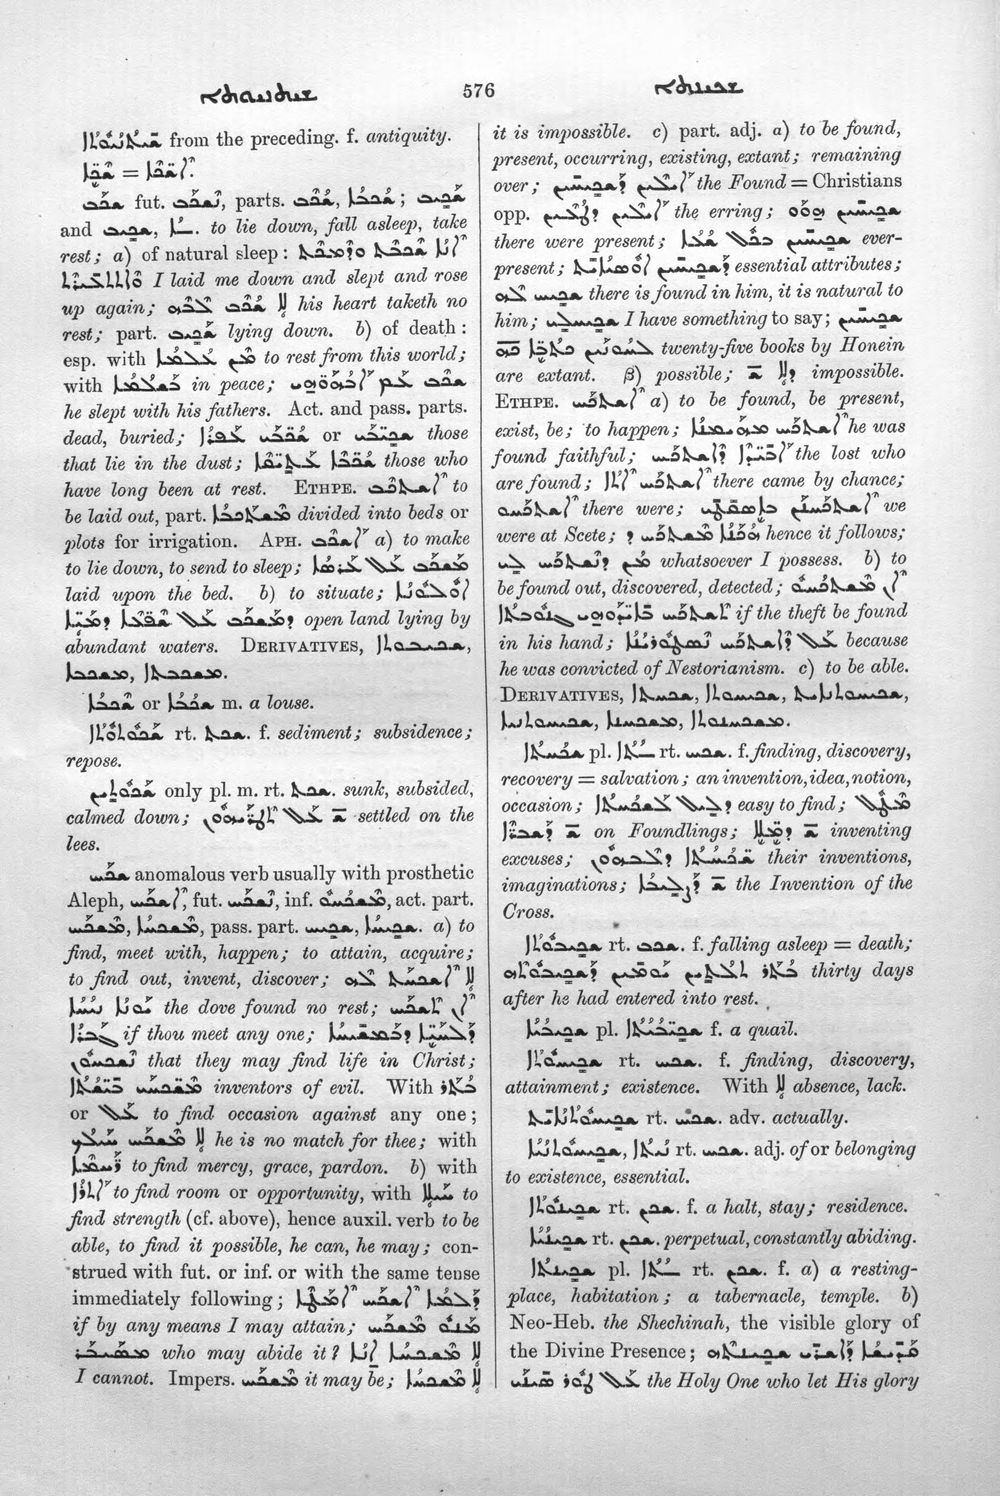 576
ܫܟܝܢܬܐ
from the preceding. f. antiquity.
ܫܟܒ fut. ܢܫܟܒ, parts. ܫܟܒ, ܫܟܒܐ; ܫܟܝܒ
and ܫܟܝܒ, ܐ. to lie down, fall asleep, take
rest; a) of natural sleep: ܐܢܐ ܫܟܒܬ ܘܕܡܟܬ
ܘܐܬܬܥܝܪܬ I laid me down and slept and rose
up again; ܠܐ ܫܟܒ ܠܒܗ his heart taketh no
rest; part. ܫܟܝܒ lying down. b) of death:
esp. with ܡܢ ܥܠܡܐ to rest from this world;
with ܒܫܠܡܐ in peace; ܫܟܒ ܥܡ ܐܒܗܘܗܝ
he slept with his fathers. Act. and pass. parts.
dead, buried; ܫܟܒܝ ܥܦܪܐ or ܫܟܝܒܝ those
that lie in the dust; ܫܟܒܐ ܥܬܝܩܐ those who
have long been at rest. ETHPE. ܐܫܬܟܒ to
be laid out, part. ܡܫܬܟܒܐ divided into beds or
plots for irrigation. APH. ܐܫܟܒ a) to make
to lie down, to send to sleep; ܡܫܟܒ ܥܠ ܥܪܣܐ
laid upon the bed. b) to situate; ܐܘܠܘܢܐ
ܕܡܫܟܒ ܥܠ ܫܩܝܐ ܕܡܝܐ open land lying by
abundant waters. DERIVATIVES, ܫܟܝܒܘܬܐ,
ܡܫܟܒܐ, ܡܫܟܒܬܐ.
ܫܟܒܐ or ܫܟܒܐ m. a louse.
rt. ܫܟܬ. f. sediment; subsidence;
repose.
only pl. m. rt. ܫܟܬ. sunk, subsided,
calmed down; settled on the
lees.
ܫܟܚ anomalous verb usually with prosthetic
Aleph, ܐܫܟܚ, fut. ܢܫܟܚ, inf. ܡܫܟܚܘ, act. part.
ܡܫܟܚ, ܡܫܟܚܐ, pass. part. ܫܟܝܚ, ܫܟܝܚܐ. a) to
find, meet with, happen; to attain, acquire;
to find out, invent, discover; ܠܐ ܐܫܟܚܬ ܠܗ
ܝܘܢܐ ܢܝܚܐ the dove found no rest; ܐܢ ܬܫܟܚ
ܓܒܪܐ if thou meet any one; ܕܠܚܝܐ ܕܒܡܫܝܚܐ
ܢܫܟܚܘܢ that they may find life in Christ;
ܡܫܟܚܝ ܒܝܫܬܐ inventors of evil. With ܒܬܪ
or ܥܠ to find occasion against any one;
ܠܐ ܡܫܟܚ ܚܝܠܟ he is no match for thee; with
ܪܚܡܐ to find mercy, grace, pardon. b) with
ܐܬܪܐ to find room or opportunity, with ܚܝܠܐ to
find strength (cf. above), hence auxil. verb to be
able, to find it possible, he can, he may; con-
strued with fut. or inf. or with the same tense
immediately following; ܕܠܡܐ ܐܫܟܚ ܐܡܛܐ
if by any means I may attain; ܡܢܘ ܡܫܟܚ
ܡܣܝܒܪ who may abide it? ܠܐ ܡܫܟܚܐ ܐܢܐ
I cannot. Impers. ܡܫܟܚ it may be; ܠܐ ܡܫܟܚܐ
it is impossible. c) part. adj. a) to be found,
present, occurring, existing, extant; remaining
over; ܐܝܠܝܢ ܕܫܟܝܚܝܢ the Found = Christians
opp. ܐܝܠܝܢ ܕܛܥܝܢ the erring; ܫܟܝܚܝܢ ܗܘܘ
there were present; ܫܟܝܚܝܢ ܒܟܠ ever-
present; ܐܘܣܝܐܝܬ ܕܫܟܝܚܝܢ essential attributes;
ܫܟܝܚ ܠܗ there is found in him, it is natural to
him; ܫܟܝܚ ܠܝ I have something to say; ܫܟܝܚܝܢ
ܠܚܘܢܝܢ ܟܬܒܐ ܟܗ twenty-five books by Honein
are extant. β) possible; ܕܠܐ ܫ impossible.
ETHPE. ܐܫܬܟܚ a) to be found, be present,
exist, be; to happen; ܐܫܬܟܚ ܡܗܝܡܢܐ he was
found faithful; ܐܒܝܕܐ ܕܐܫܬܟܚ the lost who
are found; ܐܫܬܟܚ ܐܬܐ there came by chance;
ܐܫܬܟܚܘ there were; ܐܫܬܟܚܢ ܒܐܣܩܛܝ we
were at Scete; ܡܫܬܟܚ ܗܟܢܐ ܕ hence it follows;
ܡܕܡ ܕܡܫܬܟܚ ܠܝ whatsoever I possess. b) to
be found out, discovered, detected; ܐܢ ܡܫܬܟܚܘ
ܬܫܬܟܚ ܒܐܝܕܘܗܝ ܓܢܘܒܬܐ if the theft be found
in his hand; ܥܠ ܕܐܫܬܟܚ ܢܣܛܘܪܝܢܐ because
he was convicted of Nestorianism. c) to be able.
DERIVATIVES, ܫܟܚܬܐ, ܫܟܝܚܘܬܐ, ܫܟܝܚܘܬܢܐܝܬ,
ܫܟܝܚܘܬܢܝܐ, ܡܫܟܚܢܐ, ܡܫܟܚܢܘܬܐ.
ܫܟܚܬܐ pl. ܬܐ rt. ܫܟܚ. f. finding, discovery,
recovery = salvation; an invention, idea, notion,
occasion; easy to find;
on Foundlings; inventing
excuses; ܫܟܚܬܐ ܕܠܒܗܘܢ their inventions,
imaginations; ܫ ܕܨܠܝܒܐ the Invention of the
Cross.
ܫܟܝܒܘܬܐ rt. ܫܟܒ. f. falling asleep = death;
ܒܬܪ ܬܠܬܝܢ ܝܘܡܝܢ ܕܫܟܝܒܘܬܗ thirty days
after he had entered into rest.
pl. f. a quail.
ܫܟܝܚܘܬܐ rt. ܫܟܚ. f. finding, discovery,
attainment; existence. With ܠܐ absence, lack.
ܫܟܝܚܘܬܢܐܝܬ rt. ܫܟܚ. adv. actually.
ܫܟܝܚܘܬܢܝܐ, ܢܝܬܐ rt. ܫܟܚ. adj. of or belonging
to existence, essential.
ܫܟܝܢܘܬܐ rt. ܫܟܢ. f. a halt, stay; residence.
ܫܟܝܢܝܐ rt. ܫܟܢ. perpetual, constantly abiding.
ܫܟܝܢܬܐ pl. ܬܐ rt. ܫܟܢ. f. a) a resting-
place, habitation; a tabernacle, temple. b)
Neo-Heb. the Shechinah, the visible glory of
the Divine Presence; ܩܕܝܫܐ ܕܐܫܪܝ ܫܟܝܢܬܗ
ܥܠ ܛܘܪ ܣܝܢܝ the Holy One who let His glory